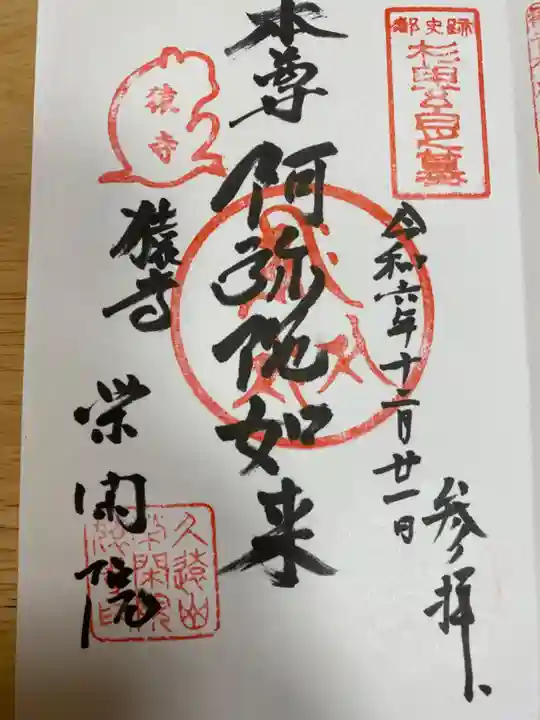 都史跡
杉田玄白之墓
参拝
令和六年十二月廿一日
本尊 阿弥陀如来
猿寺
猿寺
栄閑院
久遠山
栄閑院